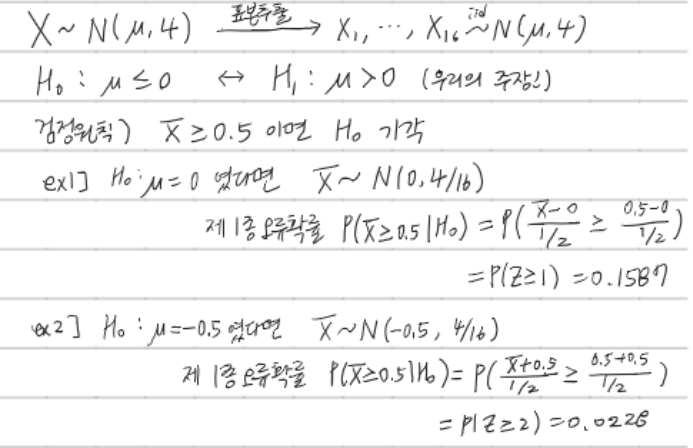 X ~ N(μ, 4) 표본추출 → X₁, ⋯, X₁₆ iid ~ N(μ, 4)
H₀ : μ ≤ 0 ↔ H₁ : μ > 0 (우리의 주장!)
검정원칙) X̄ ≥ 0.5 이면 H₀ 기각
ex1] H₀ : μ = 0 였다면 X̄ ~ N(0, 4/16)
제 1종 오류확률 P(X̄ ≥ 0.5 | H₀) = P( (X̄-0)/(1/2) ≥ (0.5-0)/(1/2) )
= P(Z ≥ 1) = 0.1587
ex2] H₀ : μ = -0.5 였다면 X̄ ~ N(-0.5, 4/16)
제 1종 오류확률 P(X̄ ≥ 0.5 | H₀) = P( (X̄+0.5)/(1/2) ≥ (0.5+0.5)/(1/2) )
= P(Z ≥ 2) = 0.0228